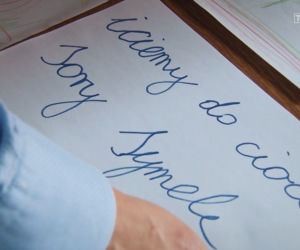 iciemy do cioc
Tony
Tymek